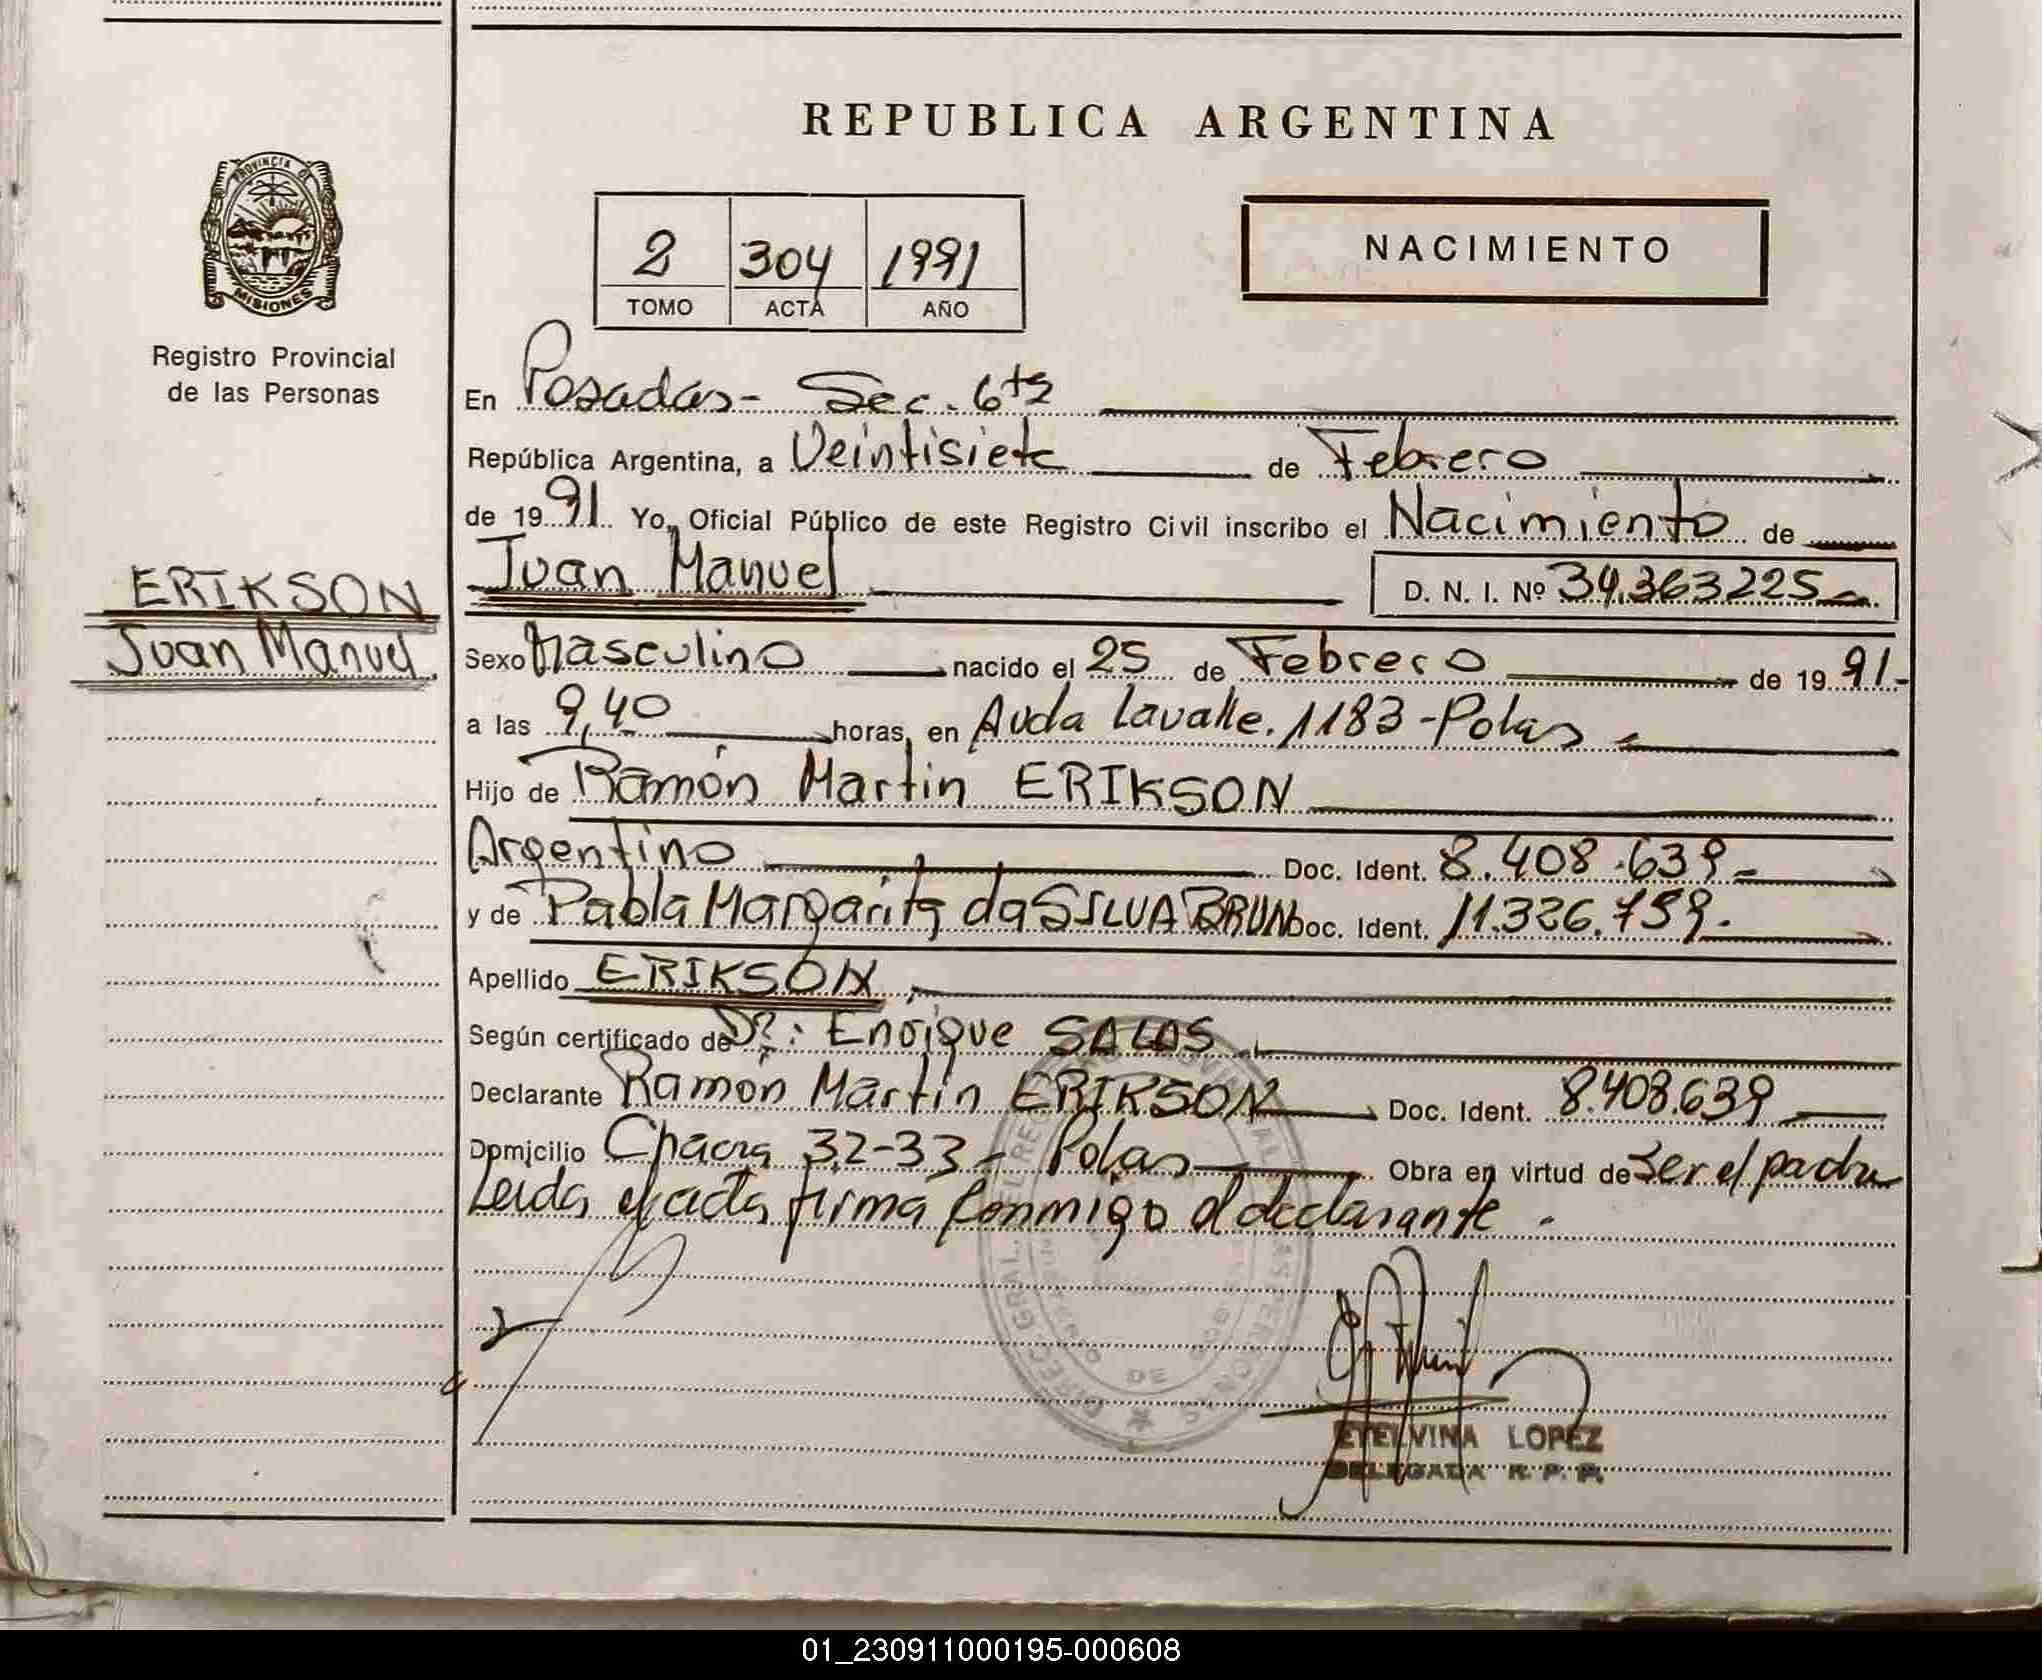 REPUBLICA ARGENTINA
PROVINCIA DE
MISIONES
Registro Provincial
de las Personas
2 304 1991
TOMO ACTA AÑO
NACIMIENTO
En Posadas- Sec. 6ta
República Argentina, a Veintisiete de Febrero
de 1991. Yo, Oficial Público de este Registro Civil inscribo el Nacimiento de
Juan Manuel D. N. I. Nº 34.363225
ERIKSON
Juan Manuel
Sexo Masculino nacido el 25 de Febrero de 1991.-
a las 9,40 horas, en Avda Lavalle. 1183-Pdas
Hijo de Ramón Martin ERIKSON
Argentino Doc. Ident. 8.408.639.-
y de Pabla Margarita da SILVA BRUN Doc. Ident. 11.326.759.-
Apellido ERIKSON
Según certificado de Dr: Enrique SALAS
Declarante Ramón Martin ERIKSON Doc. Ident. 8.408.639
Domicilio Chacra 32-33- Pdas Obra en virtud de Ser el padre
Leida el acta firma conmigo el declarante.
ETELVINA LOPEZ
DELEGADA R. P. P.
01_230911000195-000608